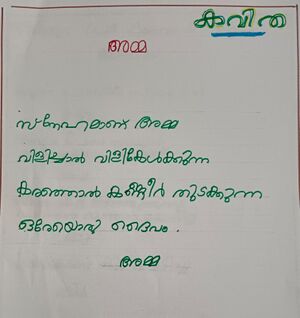 കവിത
അമ്മ
സ്നേഹമാണ് അമ്മ
വിളിച്ചാൽ വിളികേൾക്കുന്ന
കരഞ്ഞാൽ കണ്ണീർ തുടക്കുന്ന
ഒരേയൊരു ദൈവം.
അമ്മ